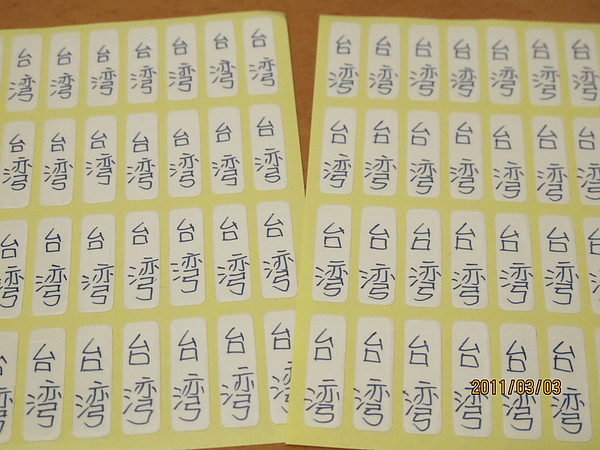 台湾 台湾 台湾 台湾 台湾 台湾 台湾 台湾 台湾 台湾 台湾 台湾 台湾 台湾
台湾 台湾 台湾 台湾 台湾 台湾 台湾 台湾 台湾 台湾 台湾 台湾 台湾 台湾
台湾 台湾 台湾 台湾 台湾 台湾 台湾 台湾 台湾 台湾 台湾 台湾 台湾 台湾
台湾 台湾 台湾 台湾 台湾 台湾 台湾 台湾 台湾 台湾 台湾 台湾
2011/03/03